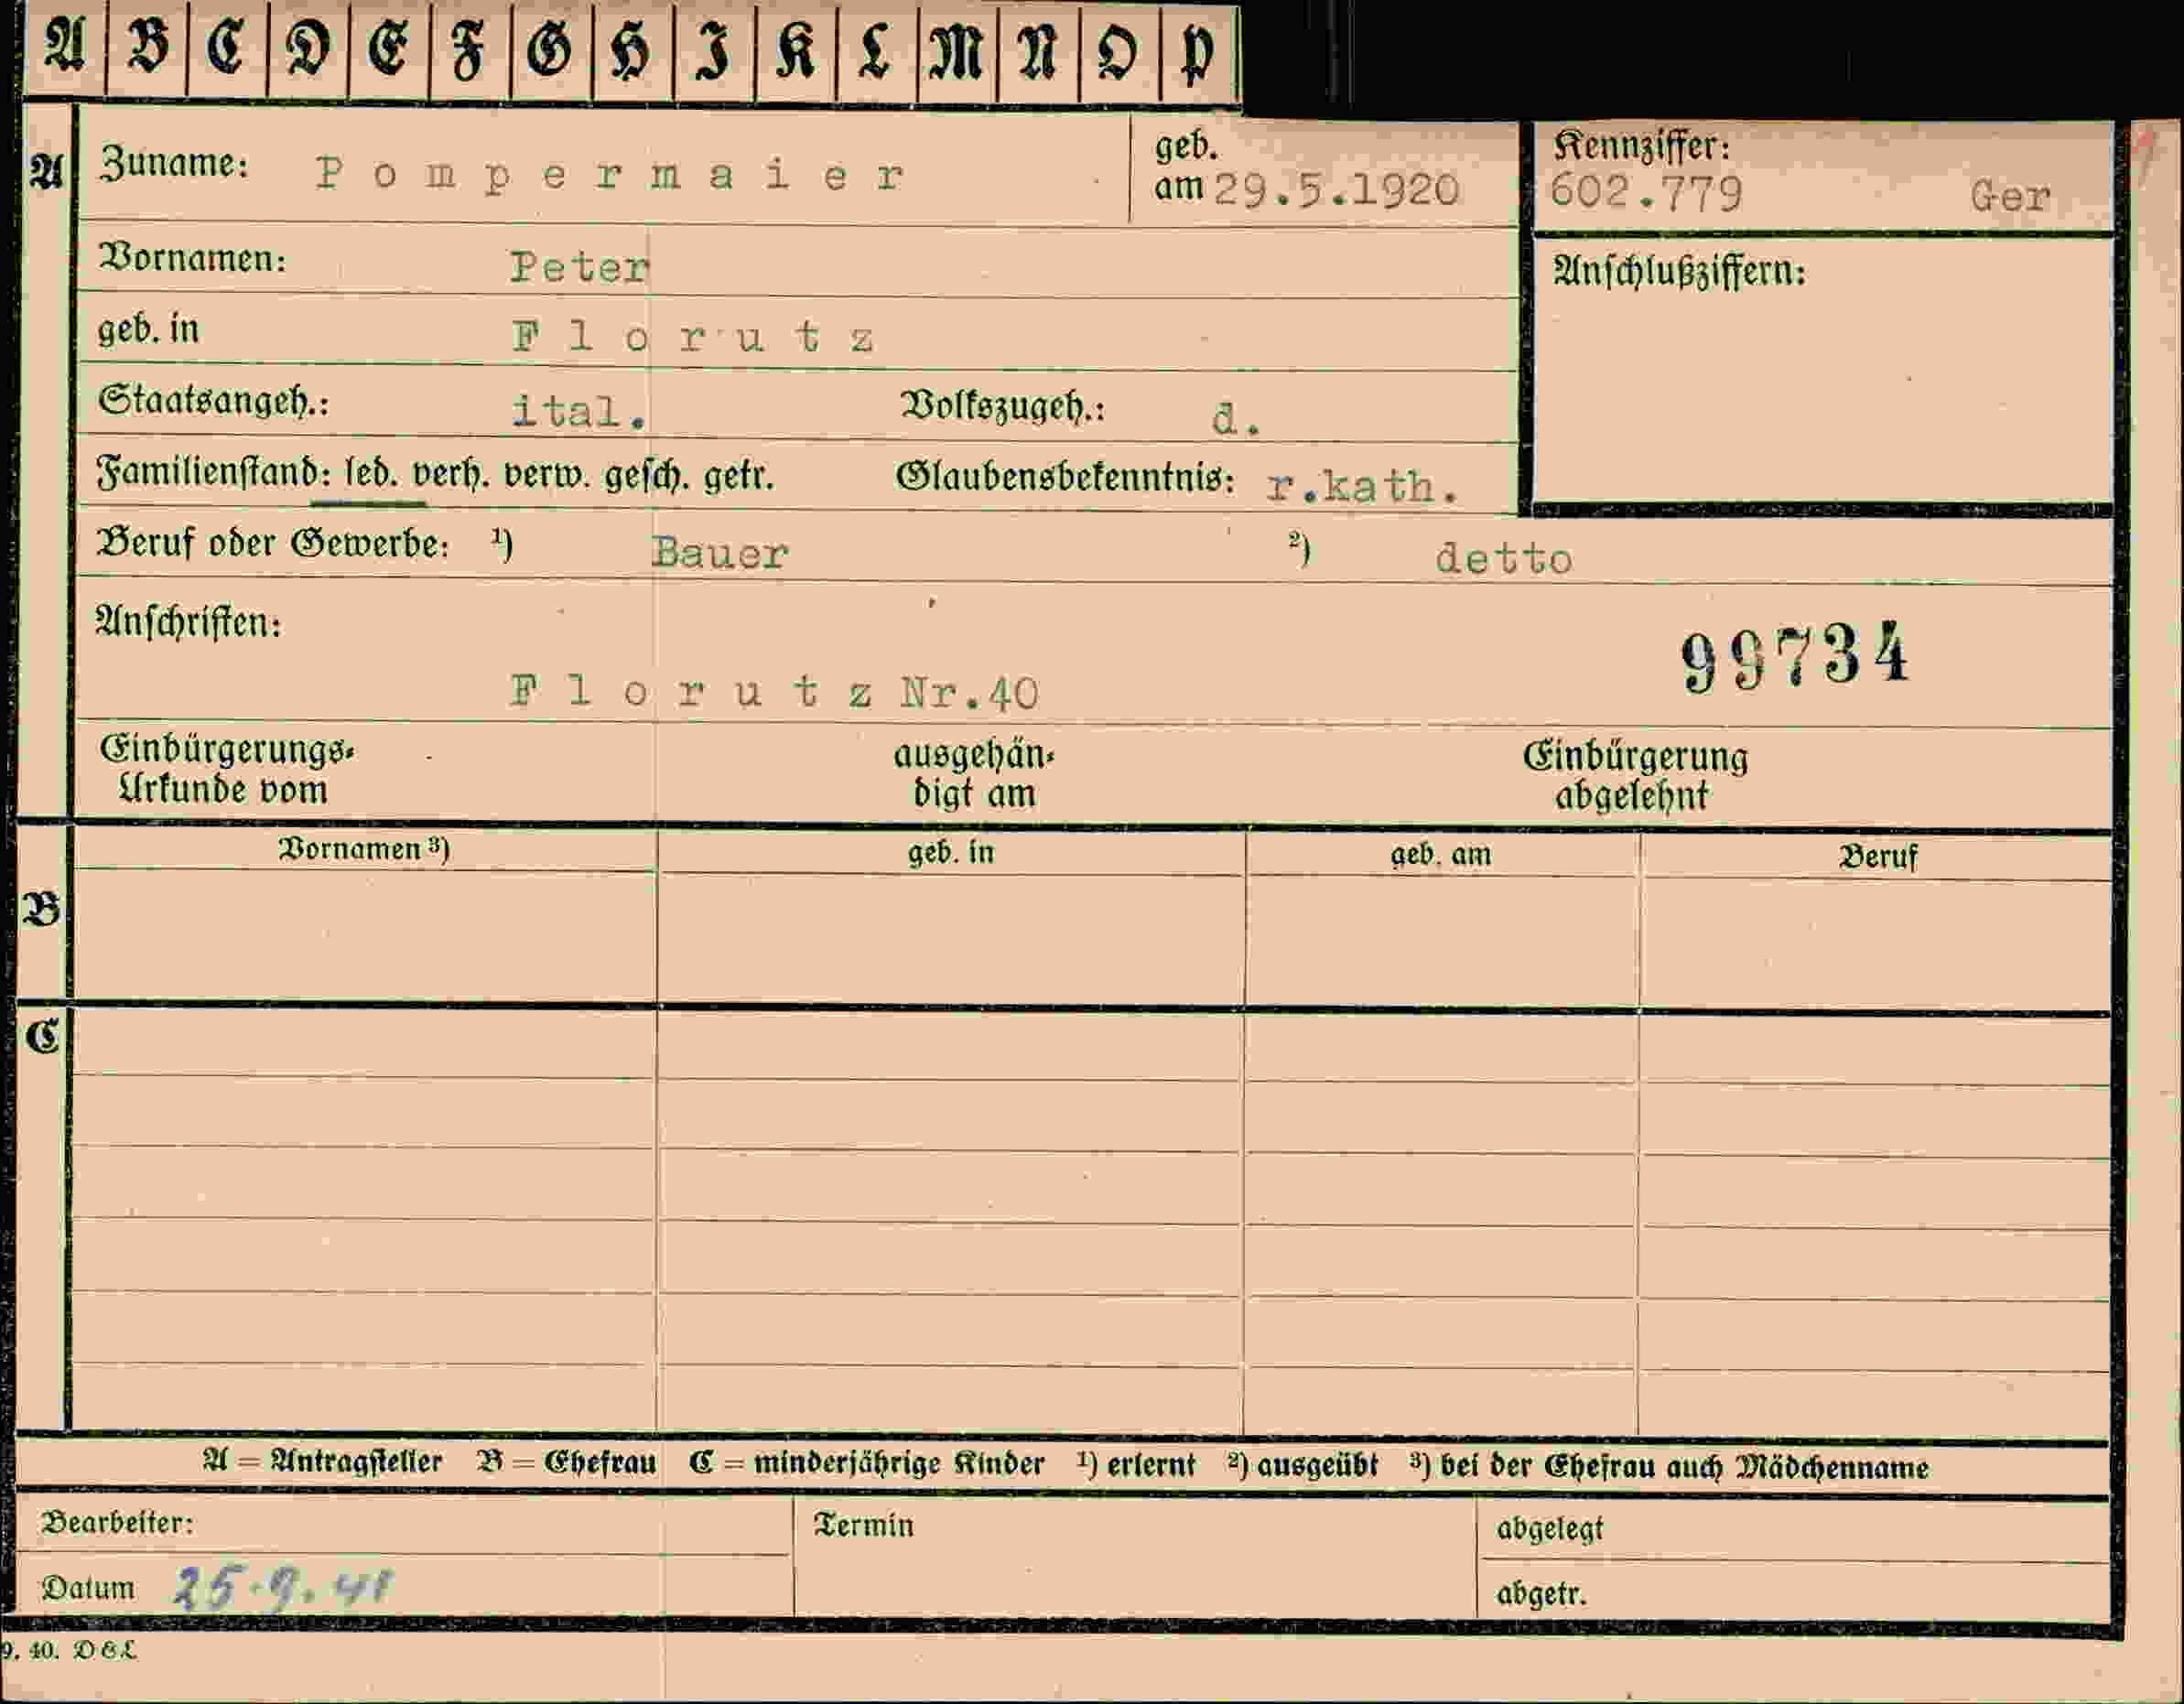 A B C D E F G H I K L M N O P
A Zuname: Pompermaier geb. am 29.5.1920 Kennziffer: 602.779 Ger
Vornamen: Peter Anschlußziffern:
geb. in Florutz
Staatsangeh.: ital. Volkszugeh.: d.
Familienstand: led. verh. verw. gesch. getr. Glaubensbekenntnis: r.kath.
Beruf oder Gewerbe: ¹) Bauer ²) detto
Anschriften:
99734
Florutz Nr.40
Einbürgerungs- ausgehän- Einbürgerung
Urkunde vom digt am abgelehnt
Vornamen ³) geb. in geb. am Beruf
B
C
A = Antragsteller B = Ehefrau C = minderjährige Kinder ¹) erlernt ²) ausgeübt ³) bei der Ehefrau auch Mädchenname
Bearbeiter: Termin abgelegt
Datum 25.9.41 abgetr.
9. 40. D&L